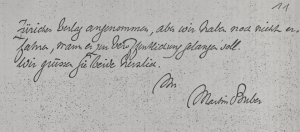 11
Züricher Verlag angenommen, aber wir haben noch nicht er-
fahren, wann er zur Veröffentlichung gelangen soll.
Wir grüssen Sie beide herzlich.
Ihr
Martin Buber